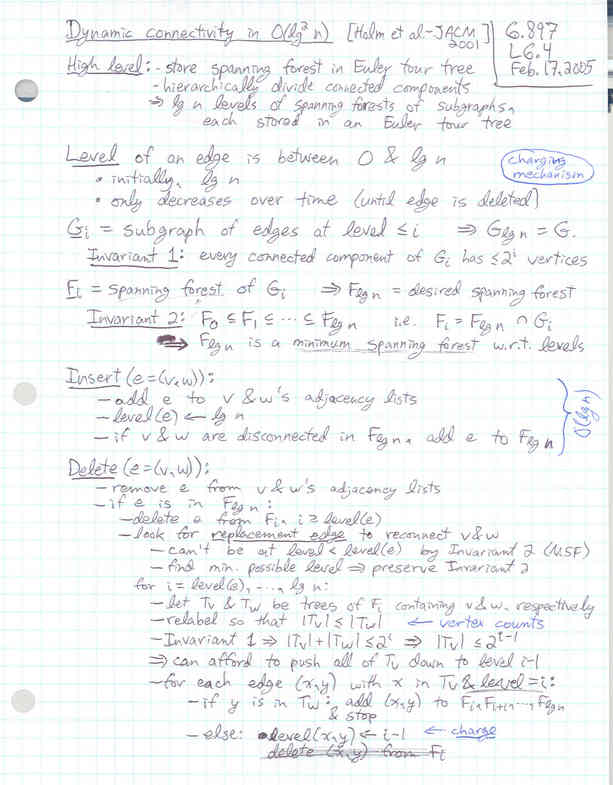 Dynamic connectivity in O(lg² n) [Holm et al. - JACM 2001]
6.897
L6.4
Feb. 17, 2005
High level: - store spanning forest in Euler tour tree
- hierarchically divide connected components
⇒ lg n levels of spanning forests of subgraphs,
each stored in an Euler tour tree
Level of an edge is between 0 & lg n
charging mechanism
• initially, lg n
• only decreases over time (until edge is deleted)
G_i = subgraph of edges at level ≤ i ⇒ G_lg n = G.
Invariant 1: every connected component of G_i has ≤ 2^i vertices
F_i = spanning forest of G_i ⇒ F_lg n = desired spanning forest
Invariant 2: F_0 ⊆ F_1 ⊆ ··· ⊆ F_lg n i.e. F_i = F_lg n ∩ G_i
⇒ F_lg n is a minimum spanning forest w.r.t. levels
Insert (e=(v,w)):
- add e to v & w's adjacency lists
- level(e) ← lg n
- if v & w are disconnected in F_lg n, add e to F_lg n
O(lg n)
Delete (e=(v,w)):
- remove e from v & w's adjacency lists
- if e is in F_lg n:
- delete e from F_i, i ≥ level(e)
- look for replacement edge to reconnect v & w
- can't be at level < level(e) by Invariant 2 (MSF)
- find min. possible level ⇒ preserve Invariant 2
for i = level(e), ..., lg n:
- let T_v & T_w be trees of F_i containing v & w, respectively
- relabel so that |T_v| ≤ |T_w| ← vertex counts
- Invariant 1 ⇒ |T_v|+|T_w| ≤ 2^i ⇒ |T_v| ≤ 2^(i-1)
⇒ can afford to push all of T_v down to level i-1
- for each edge (x,y) with x in T_v & level = i:
- if y is in T_w: add (x,y) to F_i, F_i+1, ..., F_lg n
& stop
- else: level(x,y) ← i-1 ← charge
delete (x,y) from F_i